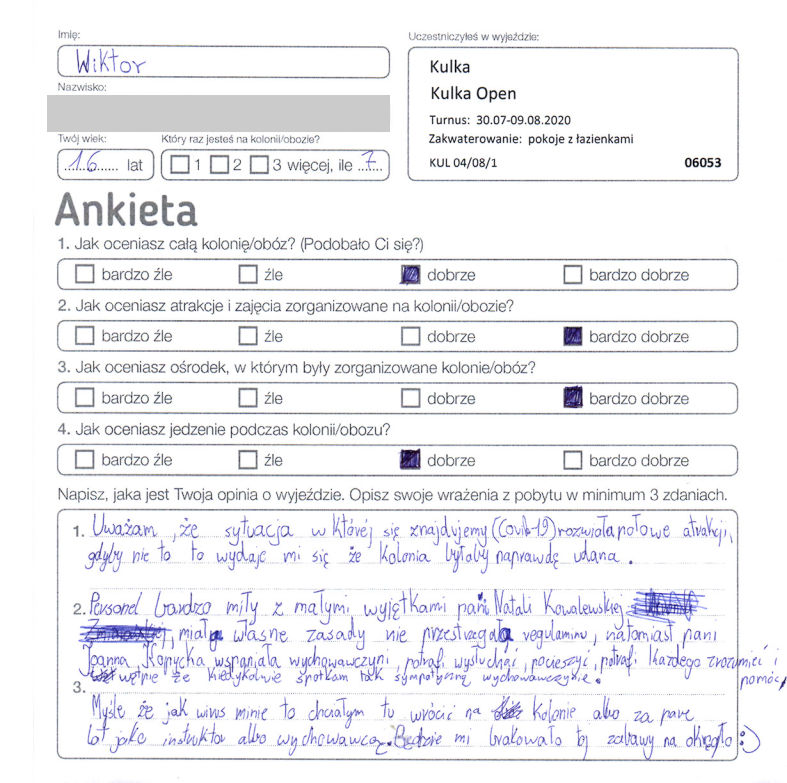 Imię:
Wiktor
Uczestniczyłeś w wyjeździe:
Kulka
Kulka Open
Turnus: 30.07-09.08.2020
Zakwaterowanie: pokoje z łazienkami
KUL 04/08/1 06053
Nazwisko:
Twój wiek:
16 lat
Który raz jesteś na kolonii/obozie?
1 2 3 więcej, ile 7
Ankieta
1. Jak oceniasz całą kolonię/obóz? (Podobało Ci się?)
bardzo źle źle dobrze bardzo dobrze
2. Jak oceniasz atrakcje i zajęcia zorganizowane na kolonii/obozie?
bardzo źle źle dobrze bardzo dobrze
3. Jak oceniasz ośrodek, w którym były zorganizowane kolonie/obóz?
bardzo źle źle dobrze bardzo dobrze
4. Jak oceniasz jedzenie podczas kolonii/obozu?
bardzo źle źle dobrze bardzo dobrze
Napisz, jaka jest Twoja opinia o wyjeździe. Opisz swoje wrażenia z pobytu w minimum 3 zdaniach.
1. Uważam, że sytuacja w której się znajdujemy (Covib-19) rozwiała połowe atrakcji,
gdyby nie to to wydaje mi się że Kolonia byłaby naprawdę udana.
2. Personel bardzo miły z małymi wyjętkami pani Natali Kowalewskiej
miała własne zasady nie przestrzegała regulaminu, natomiast pani
Joanna Kopycka wspaniała wychowawczyni, potrafi wysłuchać, pocieszyć, potrafi Każdego zrozumieć i
pomóc,
wątpie że Kiedykolwie spotkam tak sympatyczną wychowawczynie.
3. Myśle że jak wirus minie to chciałym tu wrócić na Kolonie albo za pare
lat jako instruktor albo wychowawca. Będzie mi brakowało tej zabawy na okrągło :)